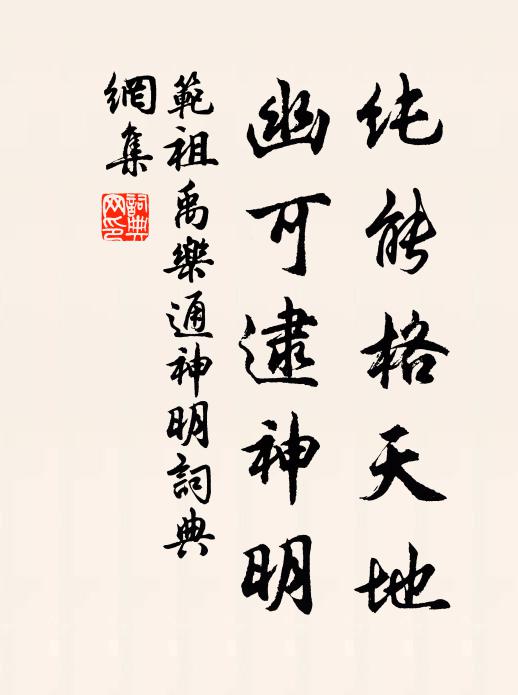 纯能格天地
幽可逮神明
範祖禹樂通神明詞典
網集
詞典
网印